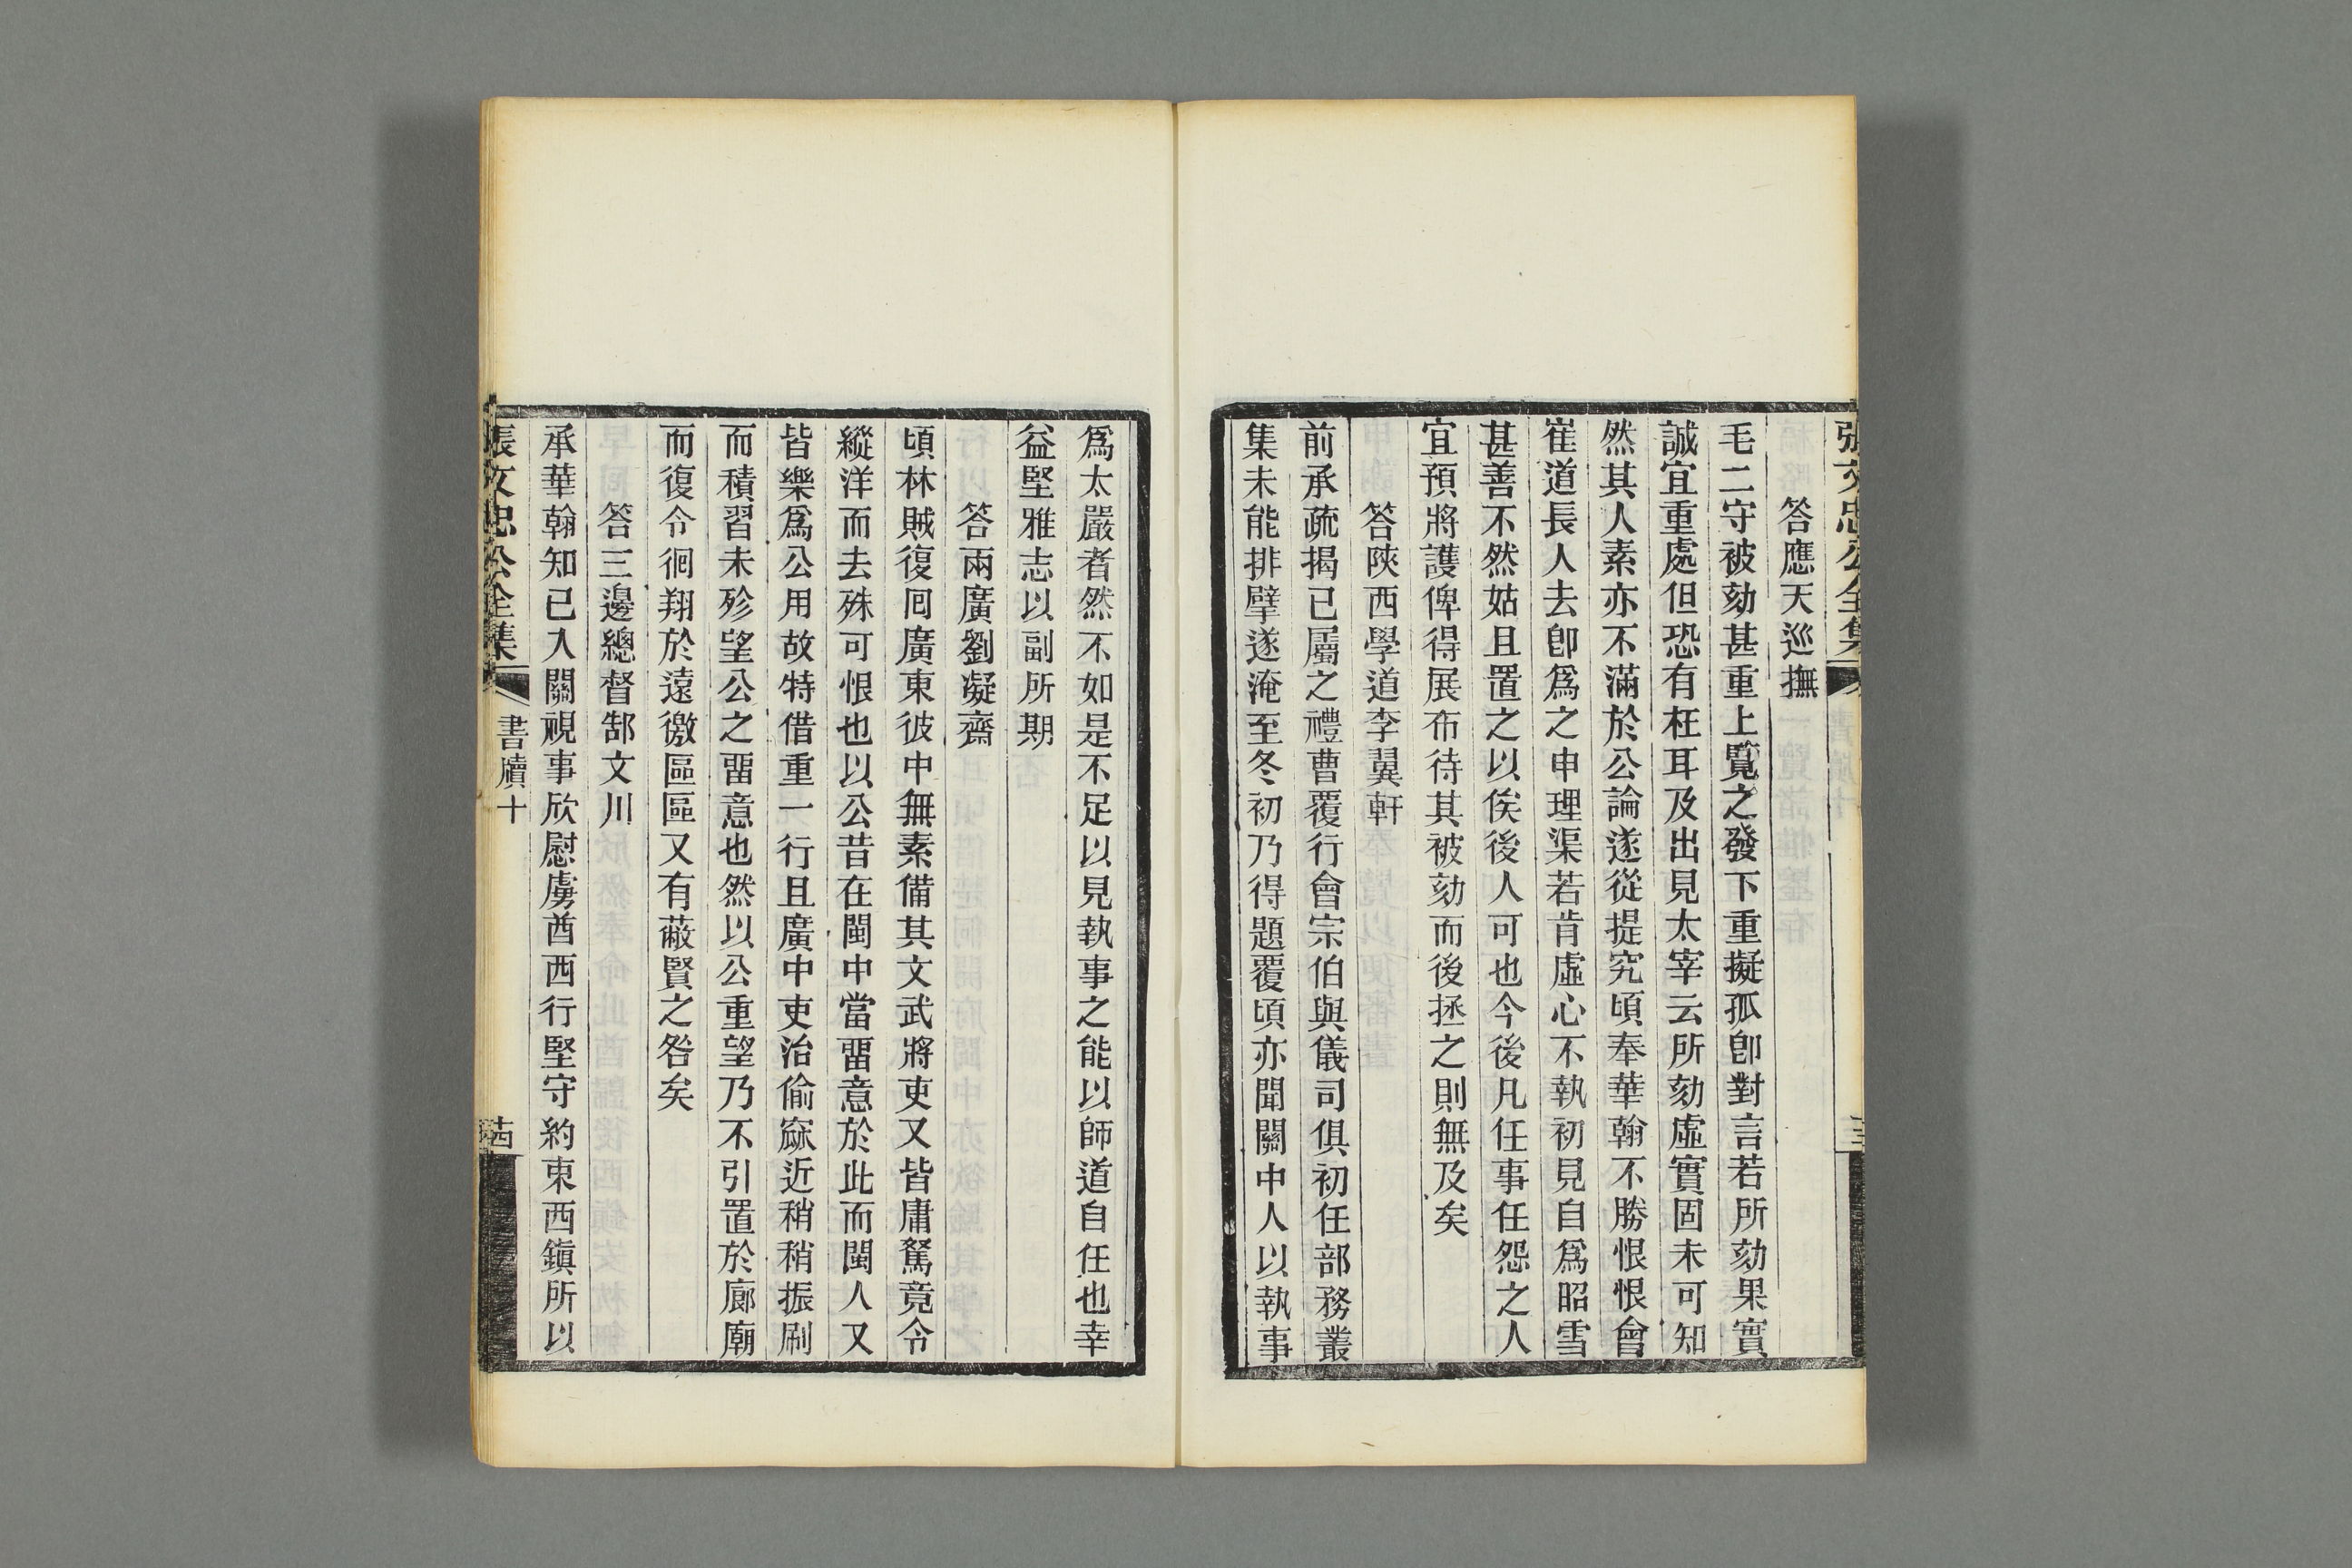 張文忠公全集
答應天巡撫
毛二守被劾甚重上覽之發下重擬孤卽對言若所劾果實
誠宜重處但恐有枉耳及出見太宰云所劾虛實固未可知
然其人素亦不滿於公論遂從提究頃奉華翰不勝恨恨會
崔道長人去卽爲之申理渠若肯虛心不執初見自爲昭雪
甚善不然姑且置之以俟後人可也今後凡任事任怨之人
宜預將護俾得展布待其被劾而後拯之則無及矣
答陝西學道李翼軒
前承疏揭已屬之禮曹覆行會宗伯與儀司俱初任部務叢
集未能排擘遂淹至冬初乃得題覆頃亦聞關中人以執事
爲太嚴者然不如是不足以見執事之能以師道自任也幸
益堅雅志以副所期
答兩廣劉凝齋
頃林賊復囘廣東彼中無素備其文武將吏又皆庸駑竟令
縱洋而去殊可恨也以公昔在閩中當畱意於此而閩人又
皆樂爲公用故特借重一行且廣中吏治偷窳近稍稍振刷
而積習未殄望公之畱意也然以公重望乃不引置於廊廟
而復令徊翔於遠徼區區又有蔽賢之咎矣
答三邊總督郜文川
承華翰知已入關視事欣慰虜酋西行堅守約束西鎭所以
張文忠公全集
書牘十
茜